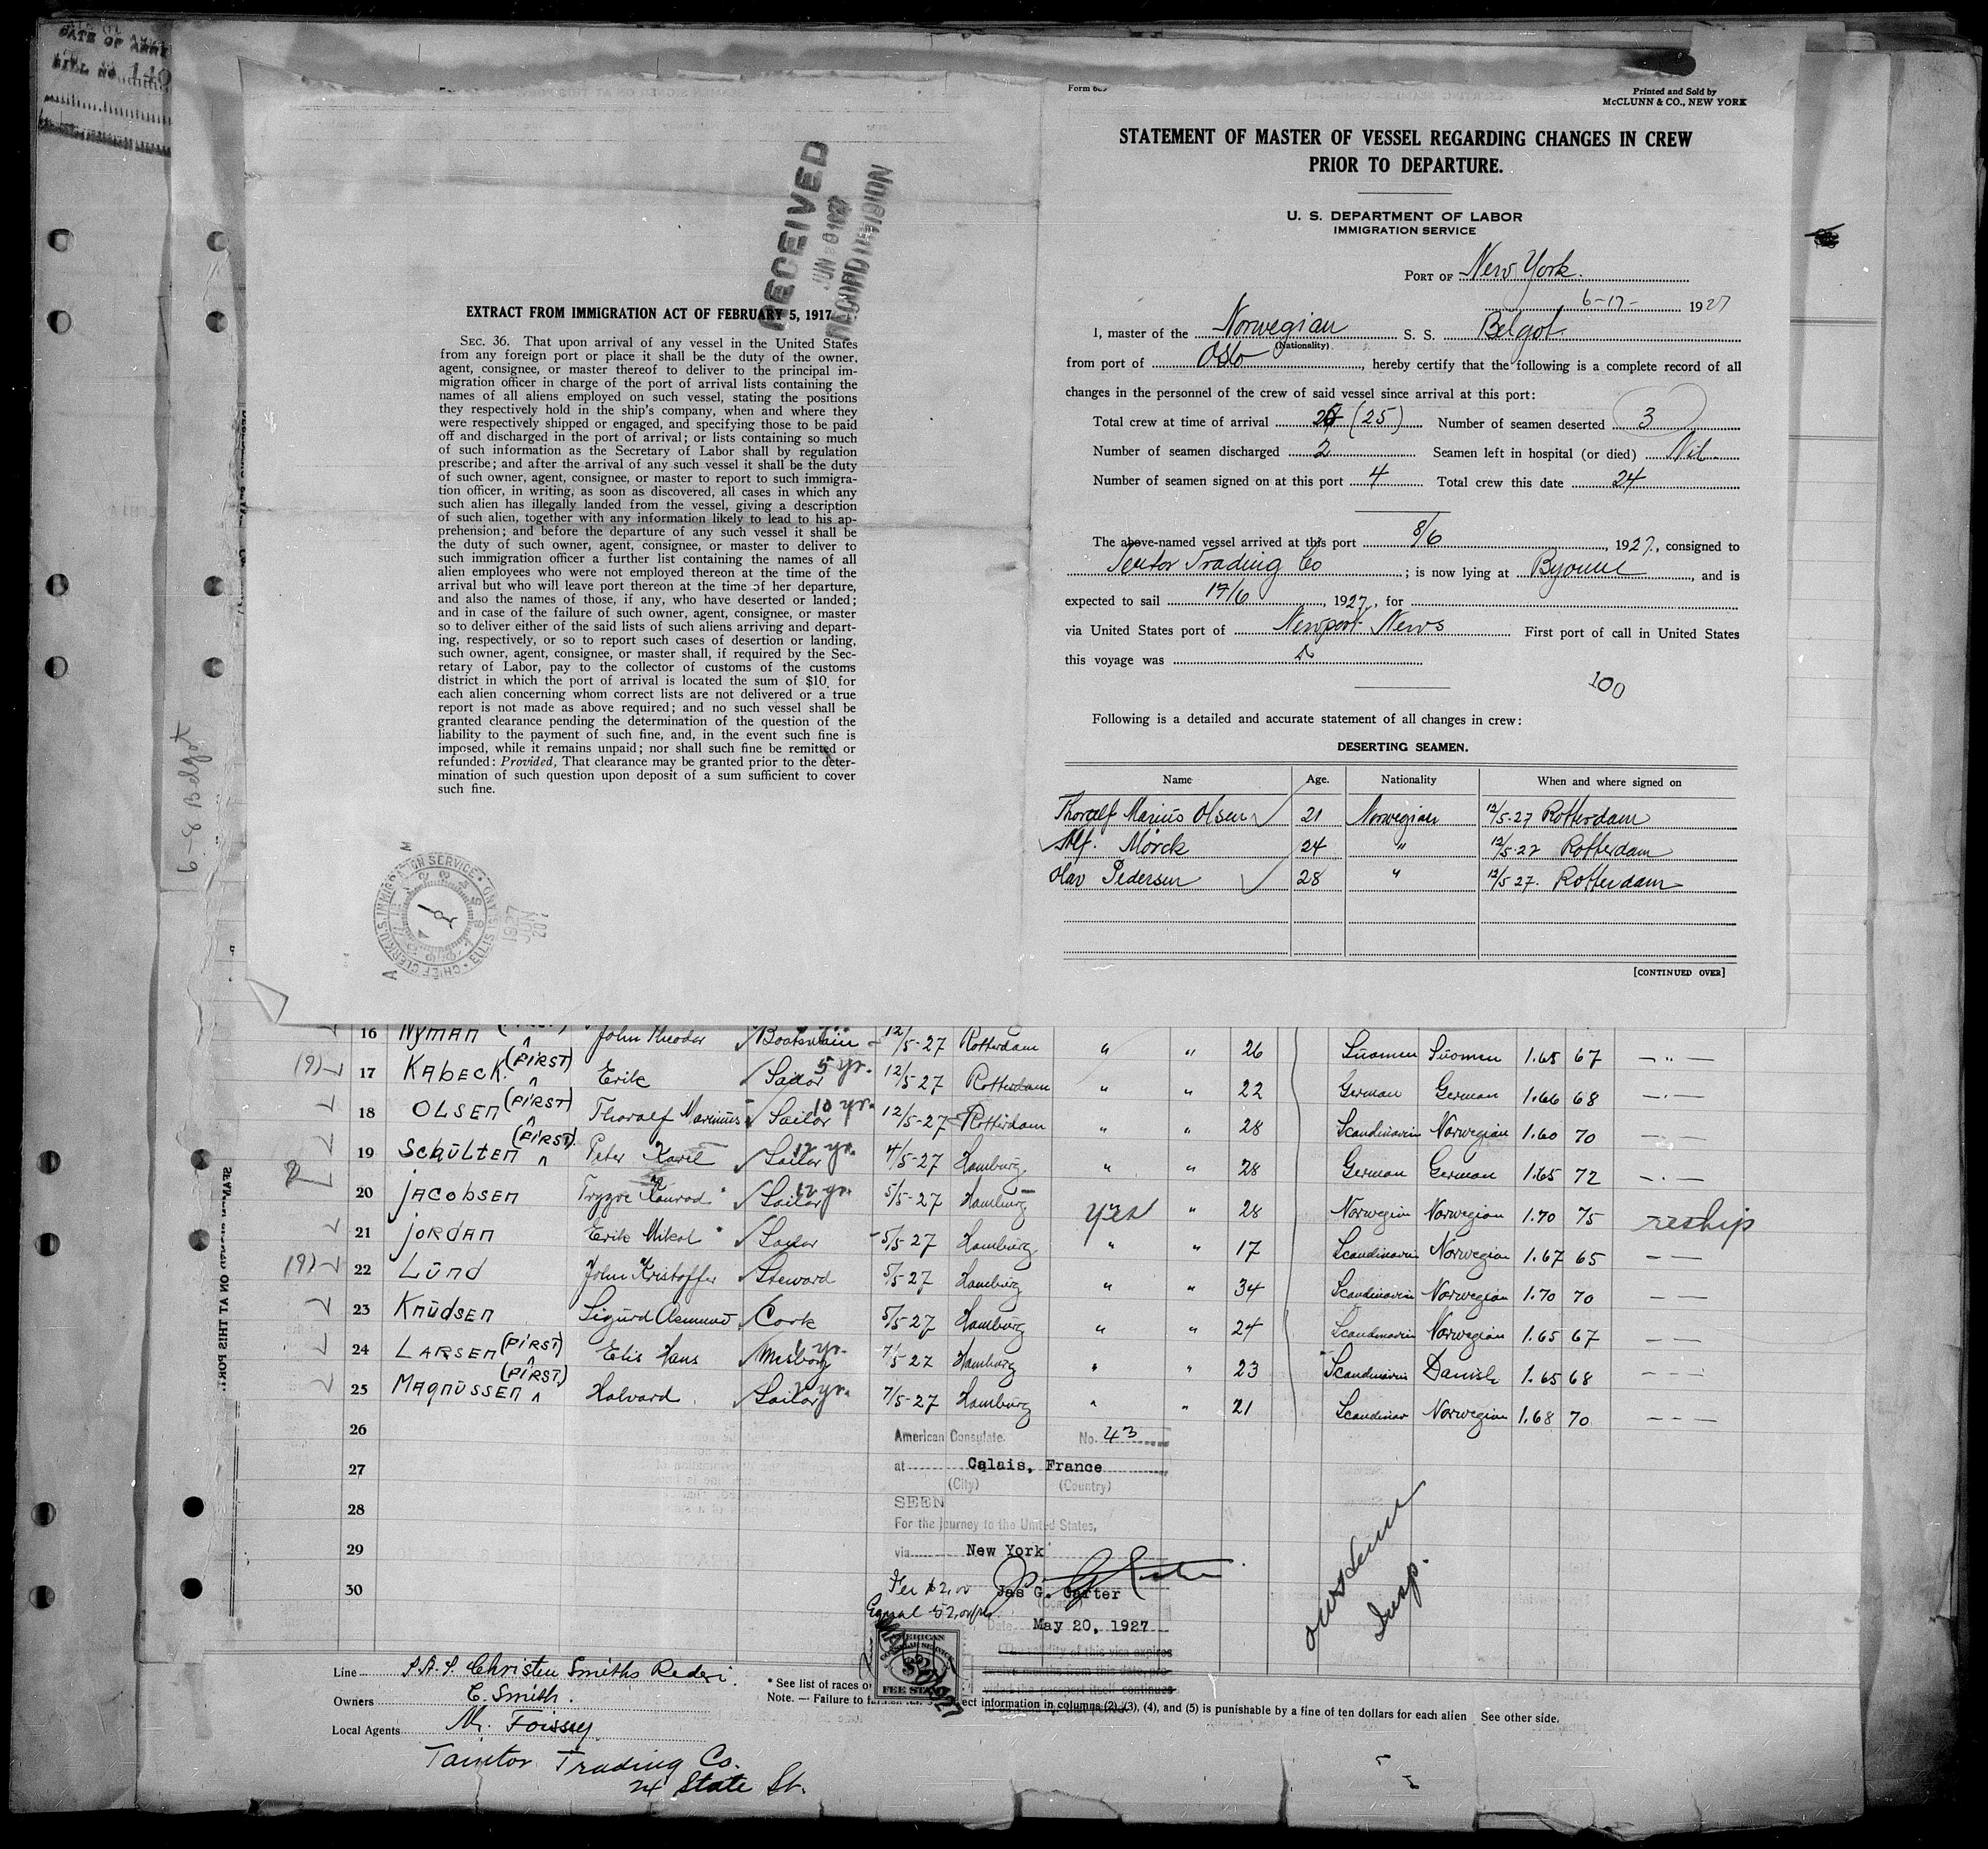 DATE OF ARRI
BILL NO 140
6-8 Belgot
RECEIVED
JUN 20 1927
RECORD DIVISION
EXTRACT FROM IMMIGRATION ACT OF FEBRUARY 5, 1917.
SEC. 36. That upon arrival of any vessel in the United States
from any foreign port or place it shall be the duty of the owner,
agent, consignee, or master thereof to deliver to the principal im-
migration officer in charge of the port of arrival lists containing the
names of all aliens employed on such vessel, stating the positions
they respectively hold in the ship's company, when and where they
were respectively shipped or engaged, and specifying those to be paid
off and discharged in the port of arrival; or lists containing so much
of such information as the Secretary of Labor shall by regulation
prescribe; and after the arrival of any such vessel it shall be the duty
of such owner, agent, consignee, or master to report to such immigra-
tion officer, in writing, as soon as discovered, all cases in which any
such alien has illegally landed from the vessel, giving a description
of such alien, together with any information likely to lead to his ap-
prehension; and before the departure of any such vessel it shall be
the duty of such owner, agent, consignee, or master to deliver to
such immigration officer a further list containing the names of all
alien employees who were not employed thereon at the time of the
arrival but who will leave port thereon at the time of her departure,
and also the names of those, if any, who have deserted or landed;
and in case of the failure of such owner, agent, consignee, or master
so to deliver either of the said lists of such aliens arriving and depart-
ing, respectively, or so to report such cases of desertion or landing,
such owner, agent, consignee, or master shall, if required by the Sec-
retary of Labor, pay to the collector of customs of the customs
district in which the port of arrival is located the sum of $10 for
each alien concerning whom correct lists are not delivered or a true
report is not made as above required; and no such vessel shall be
granted clearance pending the determination of the question of the
liability to the payment of such fine, and, in the event such fine is
imposed, while it remains unpaid; nor shall such fine be remitted or
refunded: Provided, That clearance may be granted prior to the deter-
mination of such question upon deposit of a sum sufficient to cover
such fine.
CHIEF CLERK U.S. IMMIGRATION SERVICE • ELLIS ISLAND
1927 JUN 20
Form 689
Printed and Sold by
McCLUNN & CO., NEW YORK
STATEMENT OF MASTER OF VESSEL REGARDING CHANGES IN CREW
PRIOR TO DEPARTURE.
U. S. DEPARTMENT OF LABOR
IMMIGRATION SERVICE
PORT OF New York.
6-17- 1927
I, master of the Norwegian S. S. Belgot
(Nationality)
from port of Oslo, hereby certify that the following is a complete record of all
changes in the personnel of the crew of said vessel since arrival at this port:
Total crew at time of arrival (25) Number of seamen deserted 3
Number of seamen discharged 2 Seamen left in hospital (or died) Nil.
Number of seamen signed on at this port 4 Total crew this date 24
The above-named vessel arrived at this port 8/6, 1927, consigned to
Trading Co; is now lying at Byonne, and is
expected to sail 17/6, 1927, for
via United States port of Newport News First port of call in United States
this voyage was
100
Following is a detailed and accurate statement of all changes in crew:
DESERTING SEAMEN.
Name Age. Nationality When and where signed on
Thoralf Marius Olsen 21 Norwegian 12/5-27 Rotterdam
Alf. Mörck 24 " 12/5-27 Rotterdam
Olav Pedersen 28 " 12/5 27. Rotterdam
[CONTINUED OVER]
16 Nyman John Theodor Boatswain 12/5-27 Rotterdam " " 26 Suomen Suomen 1.65 67 — " —
17 Kabeck. (FIRST) Erik Sailor 5 yr. 12/5-27 Rotterdam " " 22 German German 1.66 68 — . —
18 OLSEN (FIRST) Thoralf Marinius Sailor 10 yr. 12/5-27 Rotterdam " " 28 Scandinavin Norwegian 1.60 70 — —
19 Schülten (FIRST) Peter Karil Sailor 12 yr. 4/5-27 Hamburg. " " 28 German German 1.65 72 — . —
20 JACOBSEN Trygve Konrad Sailor 12 yr. 5/5-27 Hamburg yes " 28 Norwegian Norwegian 1.70 75 reship
21 JORDAN Erik Mikal Sailor 5/5-27 Hamburg. " " 17 Scandinavin Norwegian 1.67 65 — —
22 Lünd John Kristoffer Steward 5/5-27 Hamburg " " 34 Scandinavin Norwegian 1.70 70 — —
23 Knüdsen Sigurd Asmund Cook 5/5-27 Hamburg " " 24 Scandinavin Norwegian 1.65 67 — —
24 LARSEN (FIRST) Elis Hans Mesboy yr. 7/5-27 Hamburg " " 23 Scandinavin Danish 1.65 68 — — —
25 Magnüssen (FIRST) Halvard Sailor yr. 7/5-27 Hamburg " " 21 Scandinav Norwegian 1.68 70 — — —
26
27
28
29
30
American Consulate. No. 43
at Calais, France
(City) (Country)
SEEN
For the journey to the United States,
via New York
Fee $2.00
Jas G. Carter
Equal
Date May 20, 1927
The validity of this visa expires
twelve months from this date, pro-
vided the passport itself continues
AMERICAN
CONSULAR SERVICE
$2
FEE STAMP
MAY 20 1927
Insp.
Line S.A.S. Christen Smiths Rederi.
Owners C. Smith.
Local Agents M. Foissey
Taintor Trading Co.
24 State St.
* See list of races o
Note. — Failure to f ect information in columns (2), (3), (4), and (5) is punishable by a fine of ten dollars for each alien See other side.